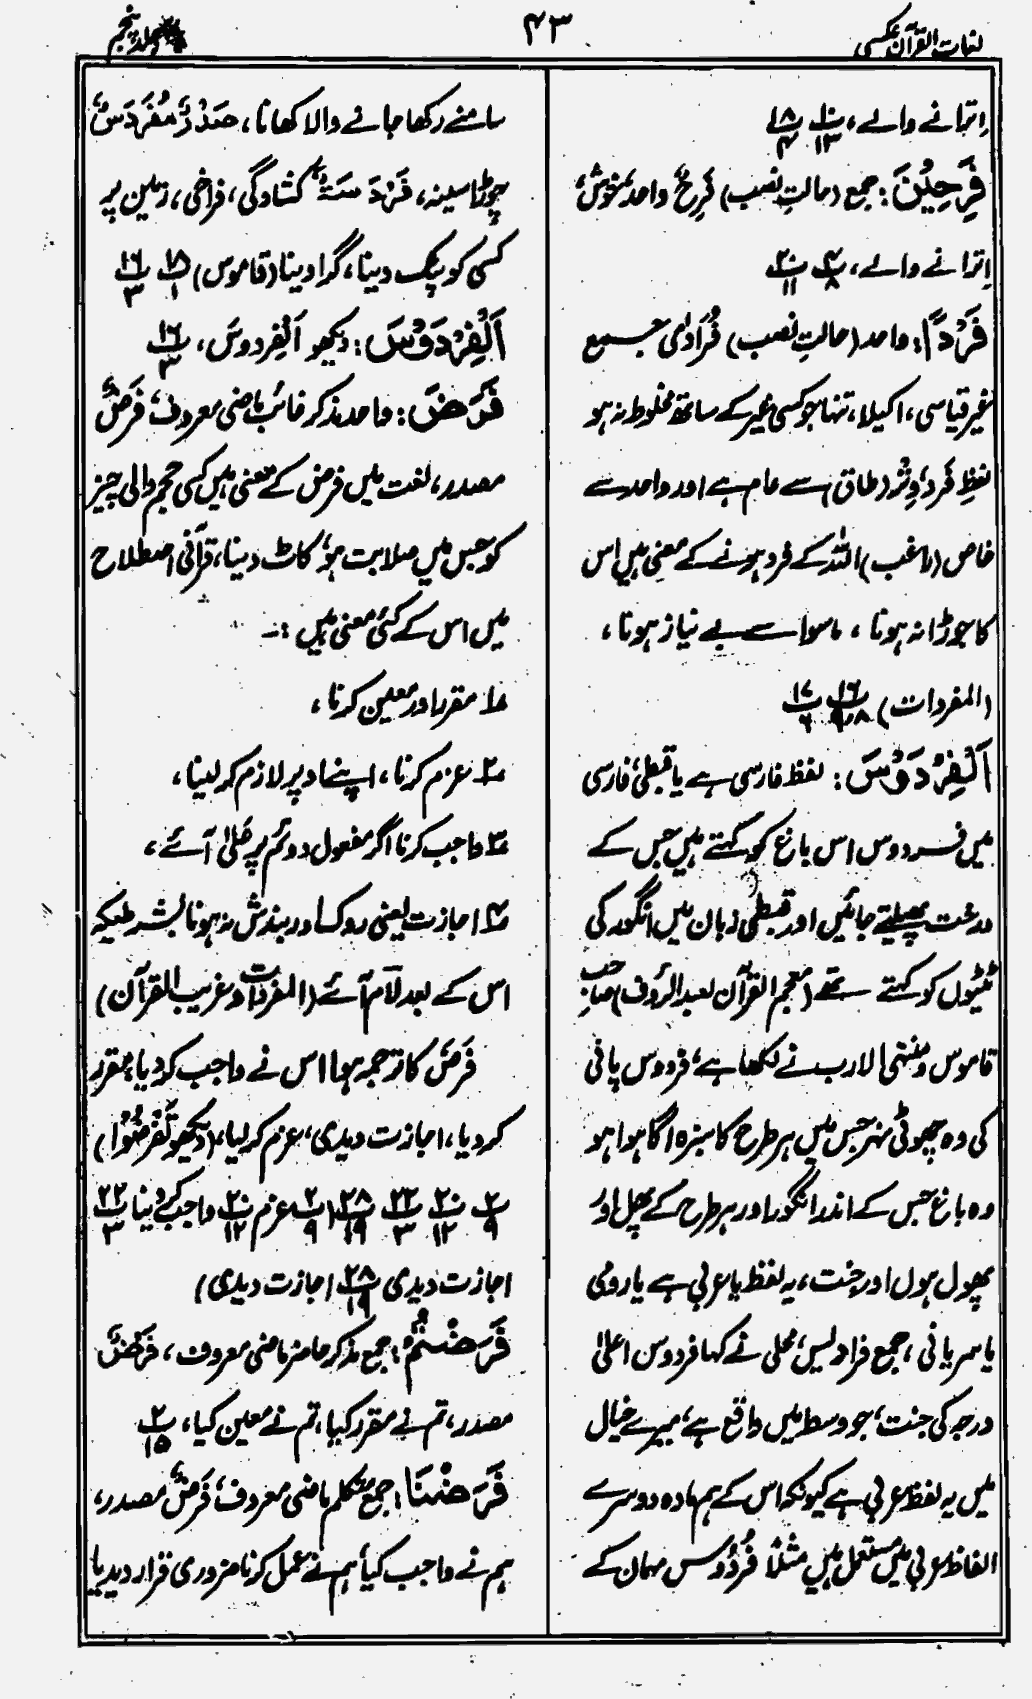 لغات القرآن عکسی
۴۳
جلد پنجم
اِترانے والے، پ۱۰/۱۳ پ۱۸/۴
فَرِحِیْنَ: جمع (حالتِ نصب) فَرِحٌ واحد، خوش،
اترانے والے، پ۴/۸ پ۲۰/۱۱
فَرْدًا: واحد (حالتِ نصب) فُرَادٰی جمع
غیر قیاسی، اکیلا، تنہا جو کسی غیر کے ساتھ مخلوط نہ ہو
لفظِ فَرد، وِتْر (طاق) سے عام ہے اور واحد سے
خاص (راغب) اللہ کے فرد ہونے کے معنی ہیں اس
کا جوڑا نہ ہونا، ماسوا سے بے نیاز ہونا،
(المفردات) پ۱۶/۹،۸ پ۱۷/۶
اَلْفِرْدَوْسَ: لفظ فارسی ہے یا قبطی، فارسی
میں فردوس اس باغ کو کہتے ہیں جس کے
درخت پھیلتے جائیں اور قبطی زبان میں انگور کی
ٹٹیوں کو کہتے تھے (معجم القرآن لعبد الرؤف) صاحب
قاموس و منتہی الارب نے لکھا ہے، فردوس پانی
کی وہ چھوٹی نہر جس میں ہر طرح کا سبزہ اگا ہوا ہو
وہ باغ جس کے اندر انگور اور ہر طرح کے پھل اور
پھول ہوں اور جنت، یہ لفظ یا عربی ہے یا رومی
یا سریانی، جمع فرادیس، محلی نے کہا فردوس اعلیٰ
درجہ کی جنت، جو وسط میں واقع ہے، میرے خیال
میں یہ لفظ عربی ہے کیونکہ اس کے ہم مادہ دوسرے
الفاظ عربی میں مستعمل ہیں مثلاً فُرْدُوس مہمان کے
سامنے رکھا جانے والا کھانا، صَدْرٌ مُفَرْدَسٌ
چوڑا سینہ، فَرْدَسَۃٌ کشادگی، فراخی، زمین پر
کسی کو پٹک دینا، گرا دینا (قاموس) پ۱۸/۱ پ۱۶/۳
اَلْفِرْدَوْسَ: دیکھو اَلْفِردوسَ، پ۱۶/۳
فَرَضَ: واحد مذکر غائب ماضی معروف، فَرْضٌ
مصدر، لغت میں فرض کے معنی ہیں کسی حجم والی چیز
کو جس میں صلابت ہو، کاٹ دینا، قرآنی اصطلاح
میں اس کے کئی معنی ہیں :۔
۱۔ مقرر اور معین کرنا،
۲۔ عزم کرنا، اپنے اوپر لازم کر لینا،
۳۔ واجب کرنا اگر مفعول دوئم پر عَلٰی آئے،
۴۔ اجازت یعنی روک اور بندش نہ ہونا بشرطیکہ
اس کے بعد لآم آئے (المفردات و غریب القرآن)
فَرَضَ کا ترجمہ ہوا اس نے واجب کر دیا، مقرر
کر دیا، اجازت دیدی، عزم کر لیا، (دیکھو تَفْرِضُوْا)
پ۲/۹ پ۲۰/۱۲ پ۲۲/۳ پ۲۸/۱۹ (پ۲/۹ عزم پ۲۰/۱۲ واجب کر دینا پ۲۲/۳
اجازت دیدی پ۲۸/۱۹ اجازت دیدی)
فَرَضْتُمْ: جمع مذکر حاضر ماضی معروف، فَرْضٌ
مصدر، تم نے مقرر کیا، تم نے معین کیا، پ۲/۱۵
فَرَضْنَا: جمع متکلم ماضی معروف، فَرْضٌ مصدر،
ہم نے واجب کیا، ہم نے عمل کرنا ضروری قرار دیدیا